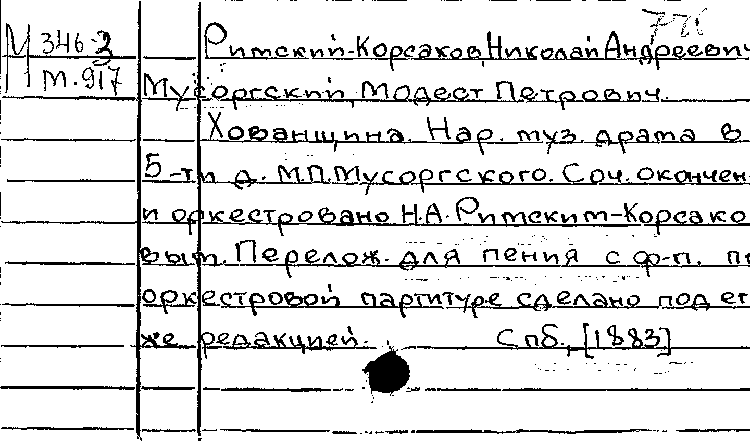 М 346-3
т.917
Римский-Корсаков, Николай Андреевич
Мусоргский, Модест Петрович.
Хованщина. Нар. муз. драма в
5-ти д. М.П.Мусоргского. Соч. окончен
и оркестровано Н.А. Римским-Корсако
вым. Перелож. для пения с ф-п. п
оркестровой партитуре сделано под ег
же редакцией. Спб., [1883]